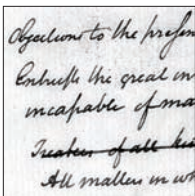 Objections to the presen
Entrusts the great in
incapable of ma
Treaties of all kin
All matters in